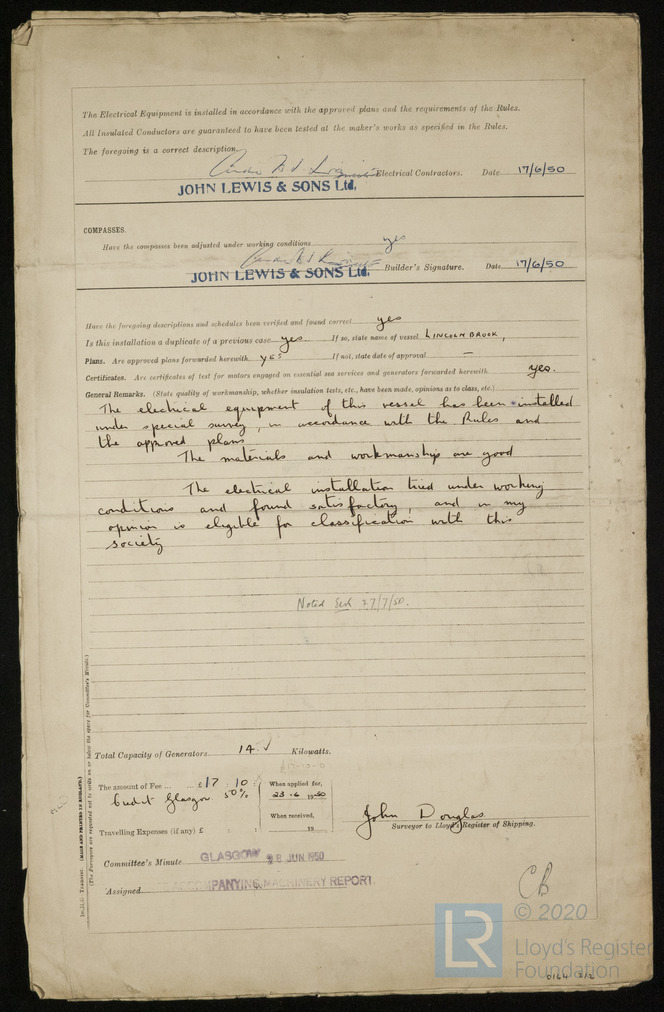 The Electrical Equipment is installed in accordance with the approved plans and the requirements of the Rules.
All Insulated Conductors are guaranteed to have been tested at the maker's works as specified in the Rules.
The foregoing is a correct description.
Electrical Contractors. Date 17/6/50
JOHN LEWIS & SONS Ltd.
COMPASSES.
Have the compasses been adjusted under working conditions yes
JOHN LEWIS & SONS Ltd. Builder's Signature. Date 17/6/50
Have the foregoing descriptions and schedules been verified and found correct yes
Is this installation a duplicate of a previous case yes. If so, state name of vessel LINCOLNBROOK,
Plans. Are approved plans forwarded herewith yes If not, state date of approval —
Certificates. Are certificates of test for motors engaged on essential sea services and generators forwarded herewith yes.
General Remarks. (State quality of workmanship, whether insulation tests, etc., have been made, opinions as to class, etc.)
The electrical equipment of this vessel has been installed
under special survey, in accordance with the Rules and
the approved plans
The materials and workmanship are good
The electrical installation tried under working
conditions and found satisfactory, and in my
opinion is eligible for classification with this
society
Noted 27/7/50.
Total Capacity of Generators 14 Kilowatts.
The amount of Fee ... ... £17 : 10 :
Credit Glasgow 50%
When applied for,
23-6 1950
When received,
19
Travelling Expenses (if any) £ : :
John Douglas
Surveyor to Lloyd's Register of Shipping.
Committee's Minute GLASGOW 28 JUN 1950
Assigned ACCOMPANYING MACHINERY REPORT.
(MADE AND PRINTED IN ENGLAND.)
(The Surveyors are requested not to write on or below the space for Committee's Minute.)
CB
© 2020
LR
Lloyd's Register
Foundation